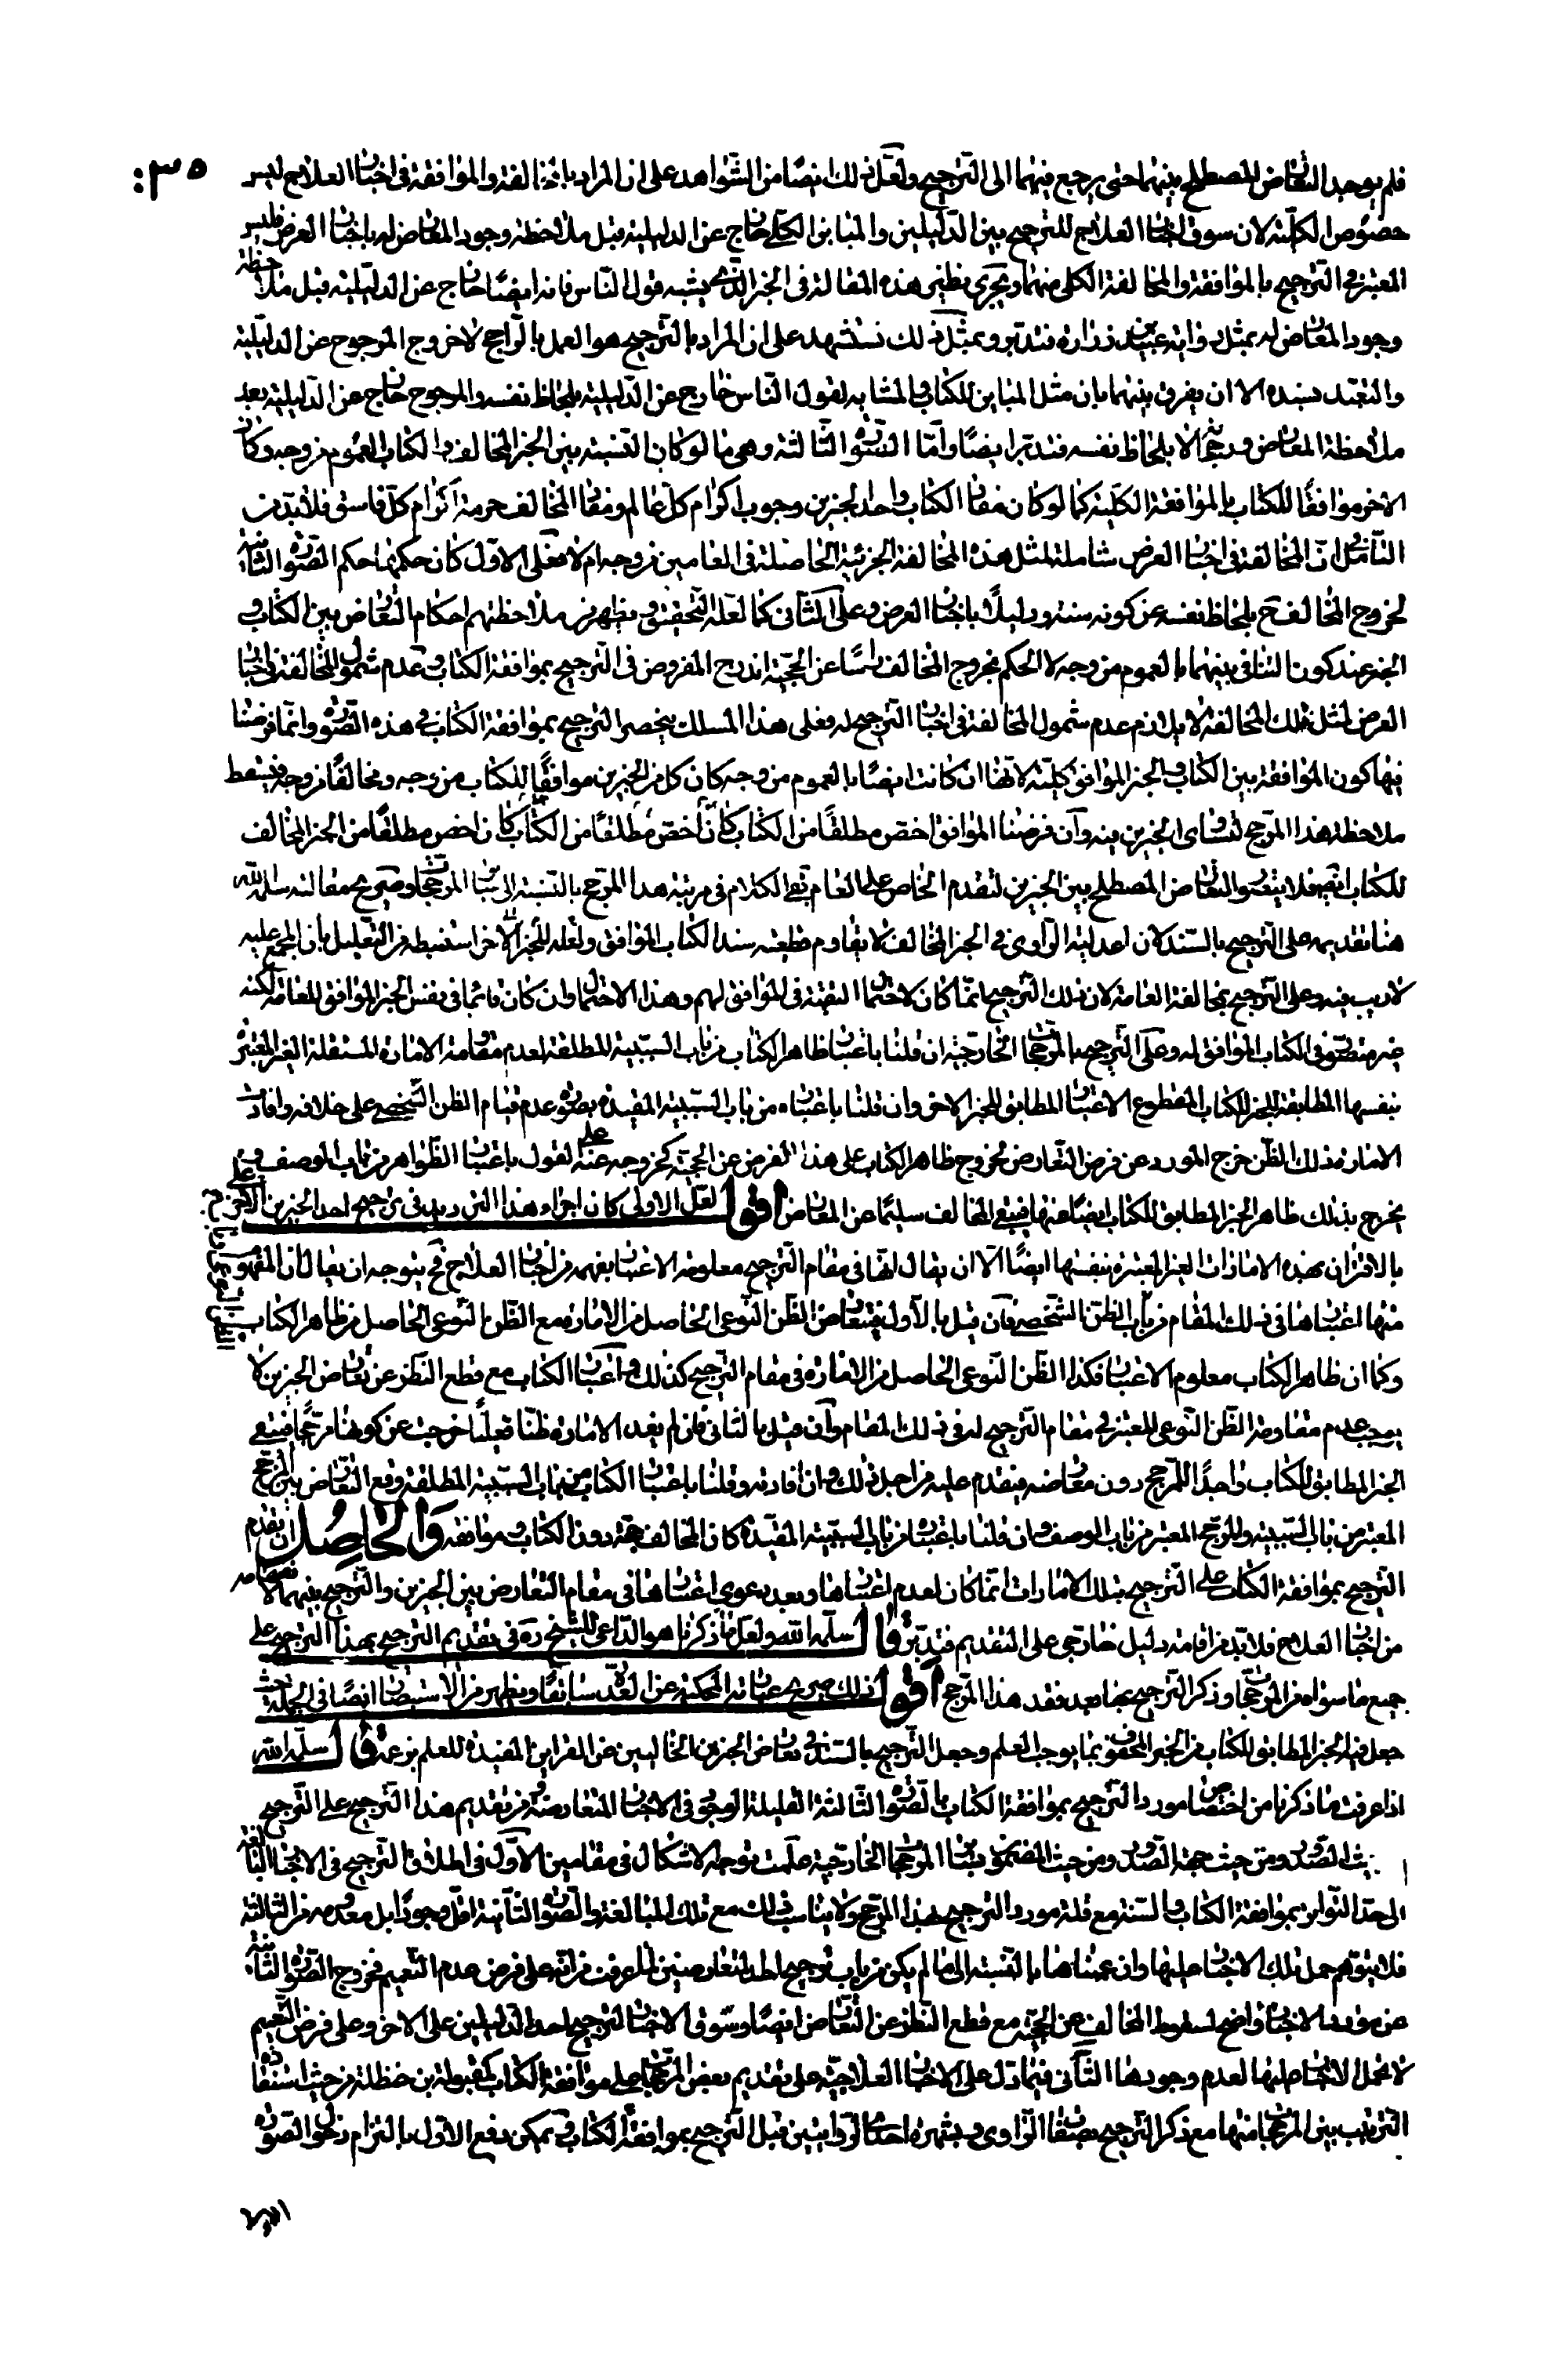 ٣٥:
فلم يوجد التعارض المصطلح بينهما حتى يرجع فيهما الى الترجيح ولعل ذلك ايضا من الشواهد على ان المراد بالمخالفة والموافقة فى اخبار العلاج ليس
خصوص الكلية لان سوق اخبار العلاج للترجيح بين الدليلين والمباين الكلى خارج عن الدليلية قبل ملاحظة وجود المعارض له باخبار العرض فليس
المعتبر فى الترجيح بالموافقة والمخالفة الكلى منهما ويجرى نظير هذه المقالة فى الخبر الذى يشبه قول الناس فانه ايضا خارج عن الدليلية قبل ملاحظة
وجود المعارض له بمثل رواية عبيد بن زرارة فتدبر وبمثل ذلك نستشهد على ان المراد بالترجيح هو العمل بالراجح لا خروج المرجوح عن الدليلية
والتعبد بسنده الا ان يفرق بينهما بان مثل المباين للكتاب والمشابه لقول الناس خارج عن الدليلية بلحاظ نفسه والمرجوح خارج عن الدليلية بعد
ملاحظة المعارض ورجحانه لا بلحاظ نفسه فتدبر ايضا واما الصورة الثالثة وهى ما لو كان النسبة بين الخبر المخالف والكتاب العموم من وجه وكان
الاخر موافقا للكتاب بالموافقة الكلية كما لو كان مفاد الكتاب واحد الخبرين وجوب اكرام كل عالم ومفاد المخالف حرمة اكرام كل فاسق فلا بد من
التامل فى ان المخالفة فى اخبار العرض شاملة لمثل هذه المخالفة الجزئية الحاصلة فى العامين من وجه ام لا فعلى الاول كان حكمها حكم الصورة الثانية
لخروج المخالف ح بلحاظ نفسه عن كونه سنة ودليلا باخبار العرض وعلى الثانى كما لعله التحقيق ويظهر من ملاحظتهم احكام التعارض بين الكتاب و
الخبر عند كون التنافى بينهما بالعموم من وجه لا الحكم بخروج المخالف راسا عن الحجية اندرج المفروض فى الترجيح بموافقة الكتاب وعدم شمول المخالفة فى اخبار
العرض لمثل تلك المخالفة لا يلازم عدم شمول المخالفة فى اخبار الترجيح له فعلى هذا المسلك ينحصر الترجيح بموافقة الكتاب فى هذه الصورة وانما فرضنا
فيها كون الموافقة بين الكتاب والخبر الموافق كلية لانها ان كانت ايضا بالعموم من وجه كان كل من الخبرين موافقا للكتاب من وجه ومخالفا من وجه فيسقط
ملاحظة هذا المرجح لتساوى الخبرين فيه وان فرضنا الموافق اخص مطلقا من الكتاب كان اخص مطلقا من الكتاب كان اخص مطلقا من الخبر المخالف
للكتاب ايضا فلا يتصور التعارض المصطلح بين الخبرين لتقدم الخاص على العام بقى الكلام فى مرتبة هذا المرجح بالنسبة الى سائر المرجحات وصريح مقالته سلمه الله
هنا تقديمه على الترجيح بالسند لان اعدلية الراوى فى الخبر المخالف لا يقاوم قطعية سند الكتاب الموافق ولعله للخبر الاخر استنبطه من التعليل بان المجمع عليه
لا ريب فيه وعلى الترجيح بمخالفة العامة لان ذلك الترجيح انما كان لاحتمال التقية فى الموافق لهم وهذا الاحتمال وان كان قائما فى نفس الخبر الموافق للعامة لكنه
غير متصور فى الكتاب الموافق له وعلى الترجيح بالمرجحات الخارجية ان قلنا باعتبار ظاهر الكتاب من باب السببية المطلقة لعدم مقاومة الامارة المستقلة الغير المعتبرة
بنفسها المطابقة للخبر للكتاب المقطوع الاعتبار المطابق للخبر الاخر وان قلنا باعتباره من باب السببية المقيدة بصورة عدم قيام الظن الشخصى على خلافه وافادت
الامارة ذلك الظن خرج المورد عن فرض التعارض لخروج ظاهر الكتاب على هذا الفرض عن الحجية كخروجه عنه على القول باعتبار الظواهر من باب الوصف و
يخرج بذلك ظاهر الخبر المطابق للكتاب ايضا عنها فيبقى المخالف سليما عن المعارض اقول لعل الاولى كان اجراء هذا الترديد فى ترجيح احد الخبرين على الاخر
بالاقتران بهذه الامارات الغير المعتبرة بنفسها ايضا الا ان يقال انها فى مقام الترجيح معلومة الاعتبار بفهمه من اخبار العلاج فح يتوجه ان يقال ان المفهوم
منها اعتبارها فى ذلك المقام من باب الظن الشخصى فان قيل بالاول فيتعارض الظن النوعى الحاصل من الامارة مع الظن النوعى الحاصل من ظاهر الكتاب
وكما ان ظاهر الكتاب معلوم الاعتبار فكذا الظن النوعى الحاصل من الامارة فى مقام الترجيح كذلك واعتبار الكتاب مع قطع النظر عن تعارض الخبرين لا
يوجب عدم مقاومة الظن النوعى المعتبر فى مقام الترجيح له فى ذلك المقام وان قيل بالثانى فان لم يفد الامارة ظنا فعليا خرجت عن كونها مرجحا فيبقى
الخبر المطابق للكتاب واجدا للمرجح دون معارضه فيتقدم عليه من اجل ذلك وان افادته وقلنا باعتبار الكتاب من باب السببية المطلقة وقع التعارض بين المرجح
المعتبر من باب السببية والمرجح المعتبر من باب الوصف وان قلنا باعتباره من باب السببية المقيدة كان المخالف حجة دون الكتاب وموافقه والحاصل ان تقدم
الترجيح بموافقة الكتاب على الترجيح بتلك الامارات انما كان لعدم اعتبارها وبعد دعوى اعتبارها فى مقام التعارض بين الخبرين والترجيح بينهما لاستفادته
من اخبار العلاج فلا بد من اقامة دليل خارجى على التقديم فتدبر قال سلمه الله ولعل ما ذكرنا هو الداعى للشيخ ره فى تقديم الترجيح بهذا الترجيح على
جميع ما سواه من المرجحات وذكر الترجيح بها بعد فقد هذا المرجح اقول ذلك صريح عبارته المحكية عن العدة سابقا ويظهر من الاستبصار ايضا فى الجملة حيث
جعل فيه الخبر المطابق للكتاب من الخبر المحفوف بما يوجب العلم وجعل الترجيح بالسند فى تعارض الخبرين الخاليين عن القراين المفيدة للعلم بزعمه قال سلمه الله
اذا عرفت ما ذكرنا من اختصاص مورد الترجيح بموافقة الكتاب بالصورة الثالثة القليلة الوجود فى الاخبار المتعارضة ومن تقديم هذا الترجيح على الترجيح
من حيث الصدور ومن حيث جهة الصدور ومن حيث المضمون بسائر المرجحات الخارجية علمت توجه الاشكال فى مقامين الاول فى اطلاق الترجيح فى الاخبار البالغة
الى حد التواتر بموافقة الكتاب والسنة مع قلة مورد الترجيح بهذا المرجح ولا يناسب ذلك مع تلك المبالغة والصورة الثانية اقل وجودا بل معدومة من الثالثة
فلا يتوهم حمل تلك الاخبار عليها وان عممناها بالنسبة الى ما لم يكن من باب ترجيح احد المتعارضين لما عرفت من انه على فرض عدم التعميم فخروج الصورة الثانية
عن مورد الاخبار واضح لسقوط المخالف عن الحجية مع قطع النظر عن التعارض ايضا وسوق الاخبار لترجيح احد الدليلين على الاخر وعلى فرض التعميم
لا تحمل الاخبار عليها لعدم وجودها الثانى فيما دل على الاخبار العلاجية على تقديم بعض المرجحات على موافقة الكتاب كمقبولة بن حنظلة من حيث استفادة
الترتيب بين المرجحات منها مع ذكر الترجيح بصفات الراوى وبشهرة احدى الروايتين قبل الترجيح بموافقة الكتاب ويمكن دفع الاول بالتزام دخول الصورة